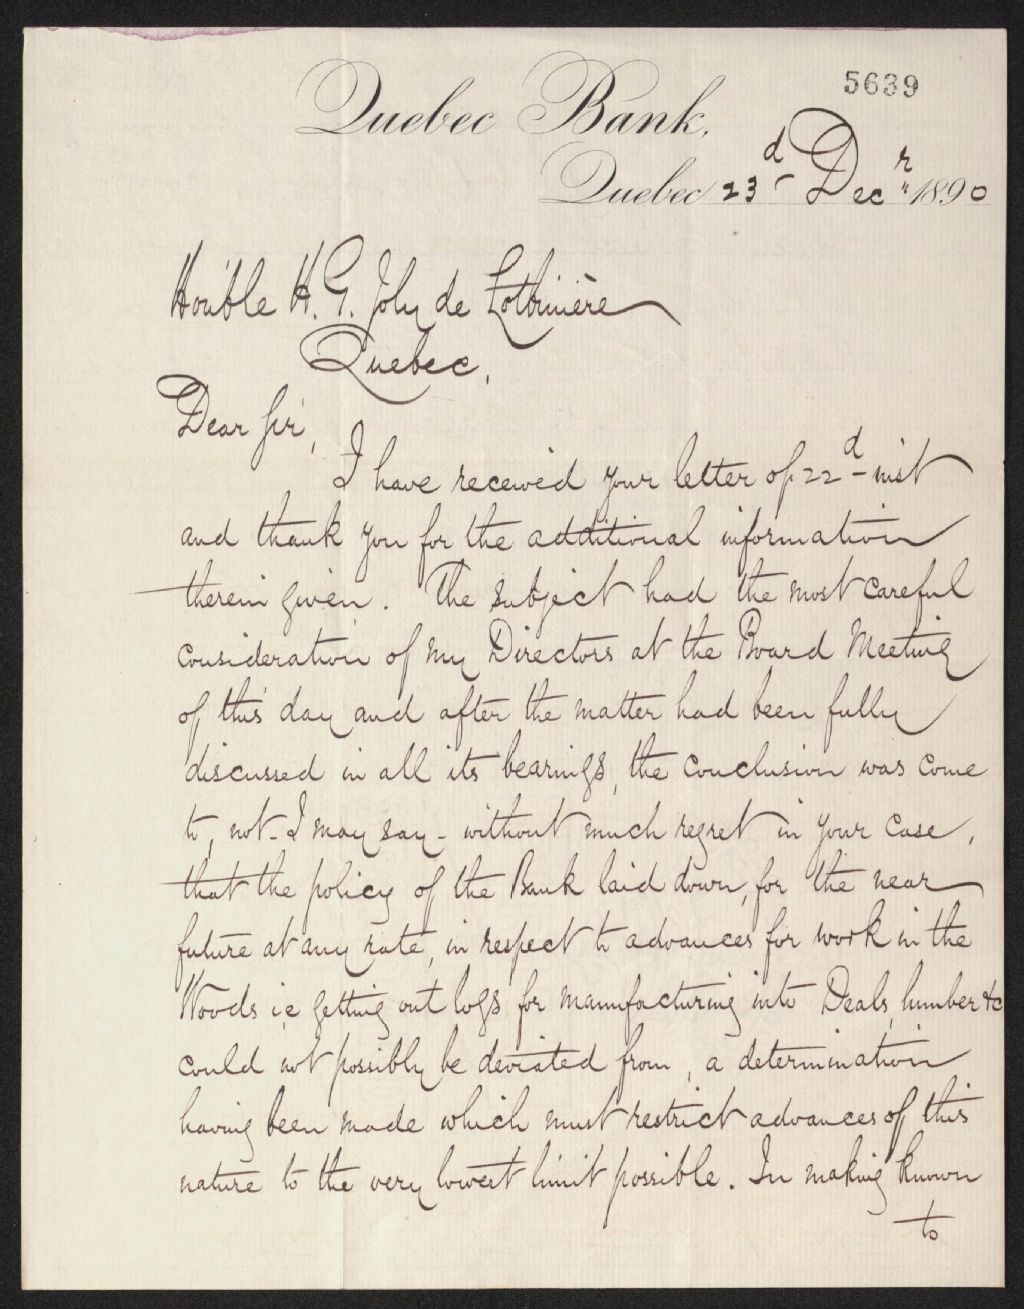 5639
Quebec Bank,
Quebec 23d Decr 1890
Hon'ble H. G. Joly de Lotbinière
Quebec,
Dear Sir,
I have received your letter of 22d inst
and thank you for the additional information
therein given. The subject had the most careful
consideration of my Directors at the Board Meeting
of this day and after the matter had been fully
discussed in all its bearings, the conclusion was come
to, not - I may say - without much regret in your case,
that the policy of the Bank laid down, for the near
future at any rate, in respect to advances for work in the
Woods i.e getting out logs for manufacturing into Deals, lumber &c
could not possibly be deviated from, a determination
having been made which must restrict advances of this
nature to the very lowest limit possible. In making known
to